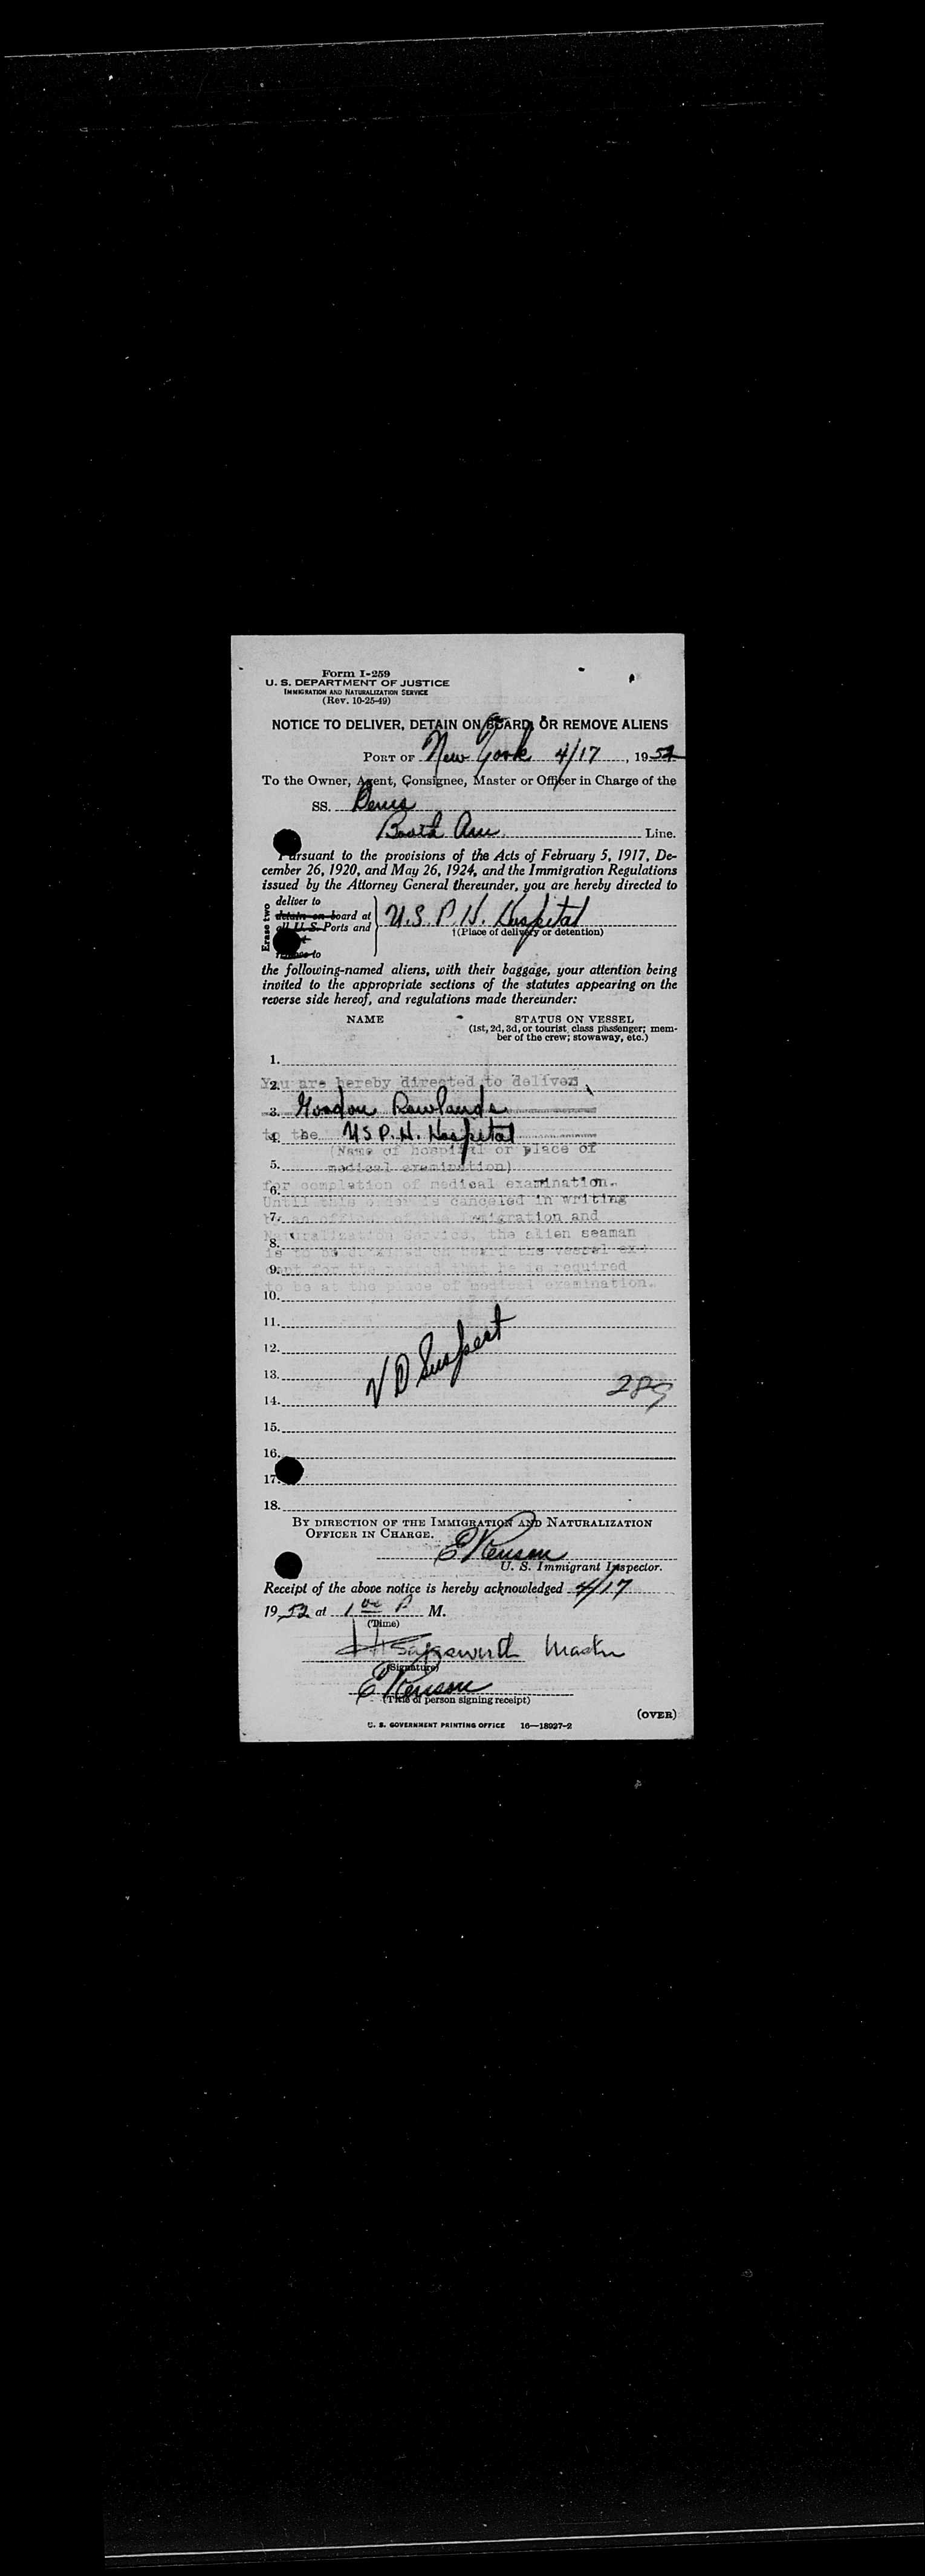 Form I-259
U. S. DEPARTMENT OF JUSTICE
IMMIGRATION AND NATURALIZATION SERVICE
(Rev. 10-25-49)
NOTICE TO DELIVER, DETAIN ON BOARD, OR REMOVE ALIENS
PORT OF New York 4/17, 1952
To the Owner, Agent, Consignee, Master or Officer in Charge of the
SS. Denis
Booth Am Line.
Pursuant to the provisions of the Acts of February 5, 1917, De-
cember 26, 1920, and May 26, 1924, and the Immigration Regulations
issued by the Attorney General thereunder, you are hereby directed to
Erase two
deliver to
detain on board at
all U. S. Ports and
to
U.S.P.H. Hospital
(Place of delivery or detention)
the following-named aliens, with their baggage, your attention being
invited to the appropriate sections of the statutes appearing on the
reverse side hereof, and regulations made thereunder:
NAME STATUS ON VESSEL
(1st, 2d, 3d, or tourist class passenger; mem-
ber of the crew; stowaway, etc.)
1.
You are hereby directed to deliver
2.
3. Gordon Rowlands
to the U.S.P.H. Hospital
4.
(Name of hospital or place of
5.
medical examination)
for completion of medical examination.
6.
Until this order is canceled in writing
7.
by an officer of the Immigration and
Naturalization Service, the alien seaman
8.
is to be detained on board the vessel ex-
9.
cept for the period that he is required
to be at the place of medical examination.
10.
11.
12.
VD Suspect
13.
289
14.
15.
16.
17.
18.
BY DIRECTION OF THE IMMIGRATION AND NATURALIZATION
OFFICER IN CHARGE.
U. S. Immigrant Inspector.
Receipt of the above notice is hereby acknowledged 4/17
1952 at 1 00 P M.
(Time)
Master
(Signature)
(Title of person signing receipt)
(OVER)
U. S. GOVERNMENT PRINTING OFFICE 16—18927-2